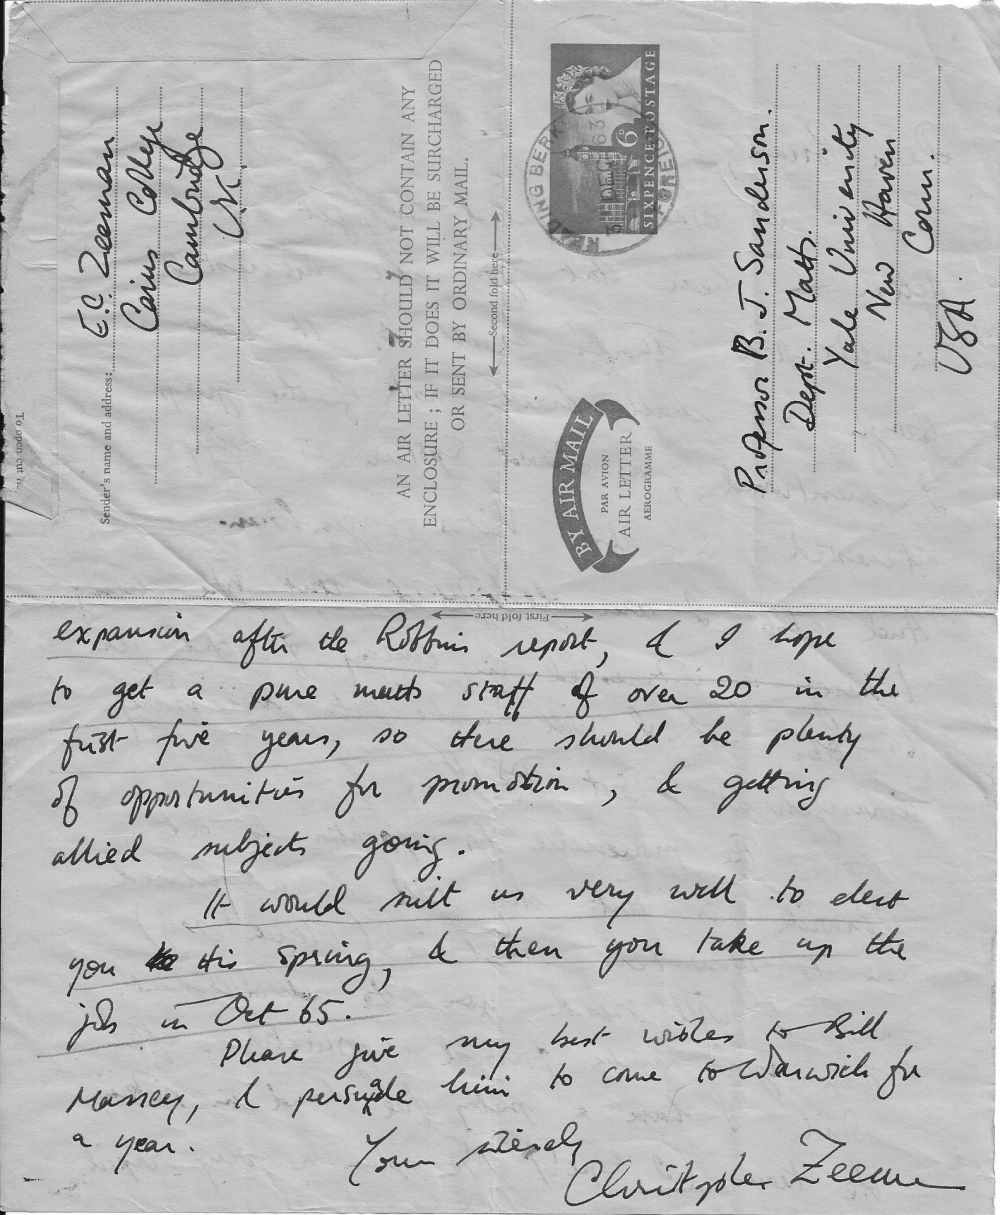 To open cut
Sender's name and address:
E.C. Zeeman
Caius College
Cambridge
U.K.
AN AIR LETTER SHOULD NOT CONTAIN ANY
ENCLOSURE ; IF IT DOES IT WILL BE SURCHARGED
OR SENT BY ORDINARY MAIL.
Second fold here
BY AIR MAIL
PAR AVION
AIR LETTER
AEROGRAMME
READING BERKS
DEC
63
6D
SIXPENCE POSTAGE
Professor B. J. Sanderson.
Dept. Maths.
Yale University
New Haven
Conn.
USA.
First fold here
expansion after the Robbins report, & I hope
to get a pure maths staff of over 20 in the
first five years, so there should be plenty
of opportunities for promotion, & getting
allied subjects going.
It would suit us very well to elect
you this Spring, & then you take up the
job in Oct 65.
Please give my best wishes to Bill
Massey, & persuade him to come to Warwick for
a year.
Yours sincerely
Christopher Zeeman